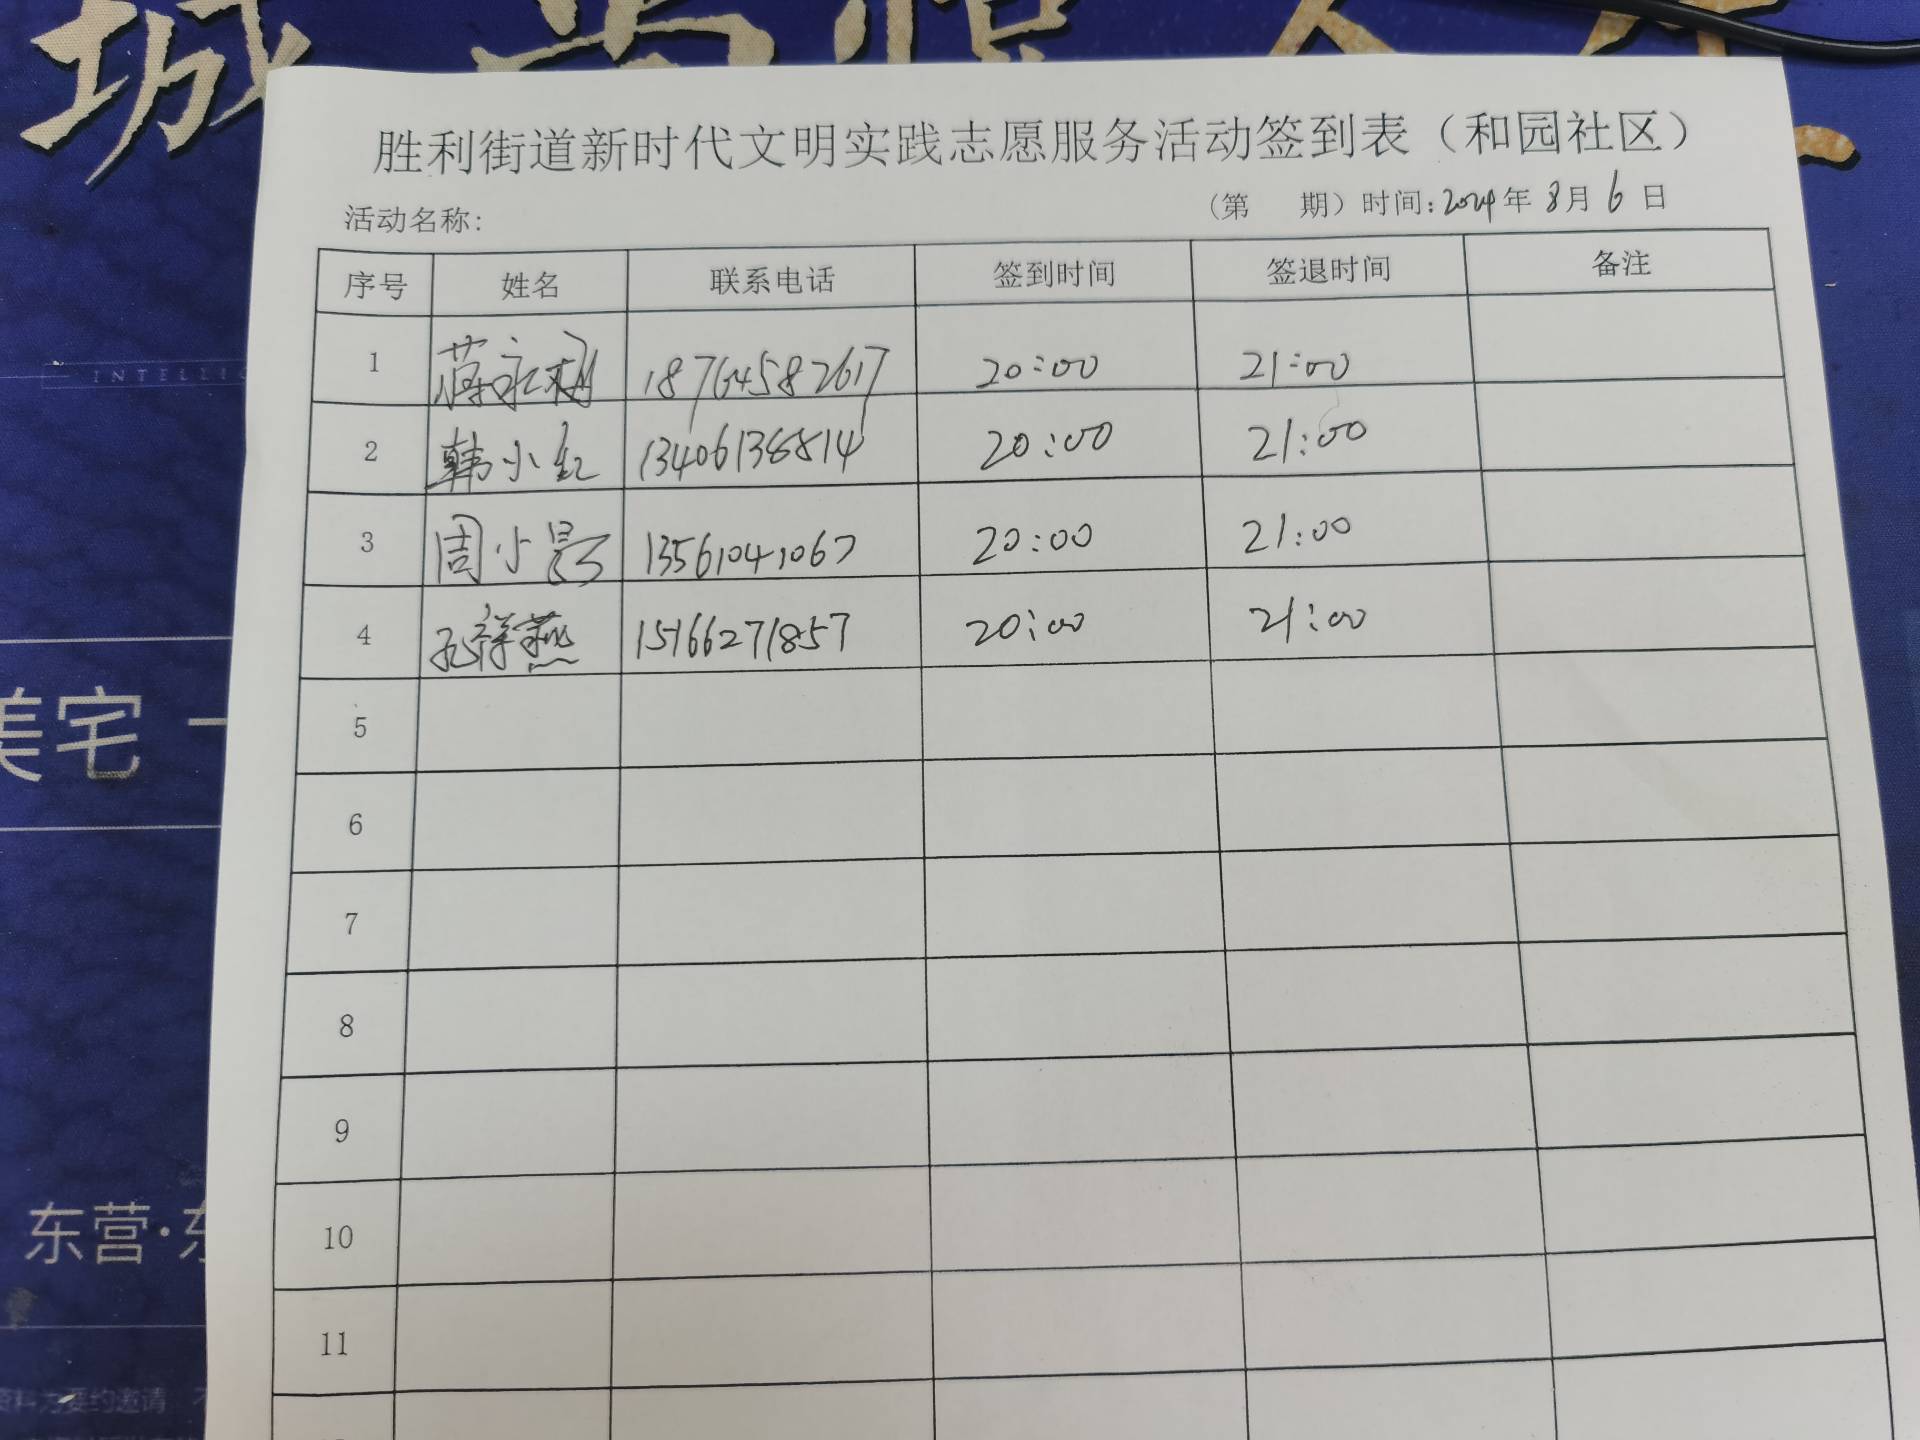 INTELLIG
美宅
东营·东
要约邀请
胜利街道新时代文明实践志愿服务活动签到表（和园社区）
活动名称: （第 期）时间:2024年8月6日
序号 姓名 联系电话 签到时间 签退时间 备注
1 蒋永 18764582617 20:00 21:00
2 韩小红 13406138814 20:00 21:00
3 周小 13561041067 20:00 21:00
4 孔祥燕 15166271857 20:00 21:00
5
6
7
8
9
10
11